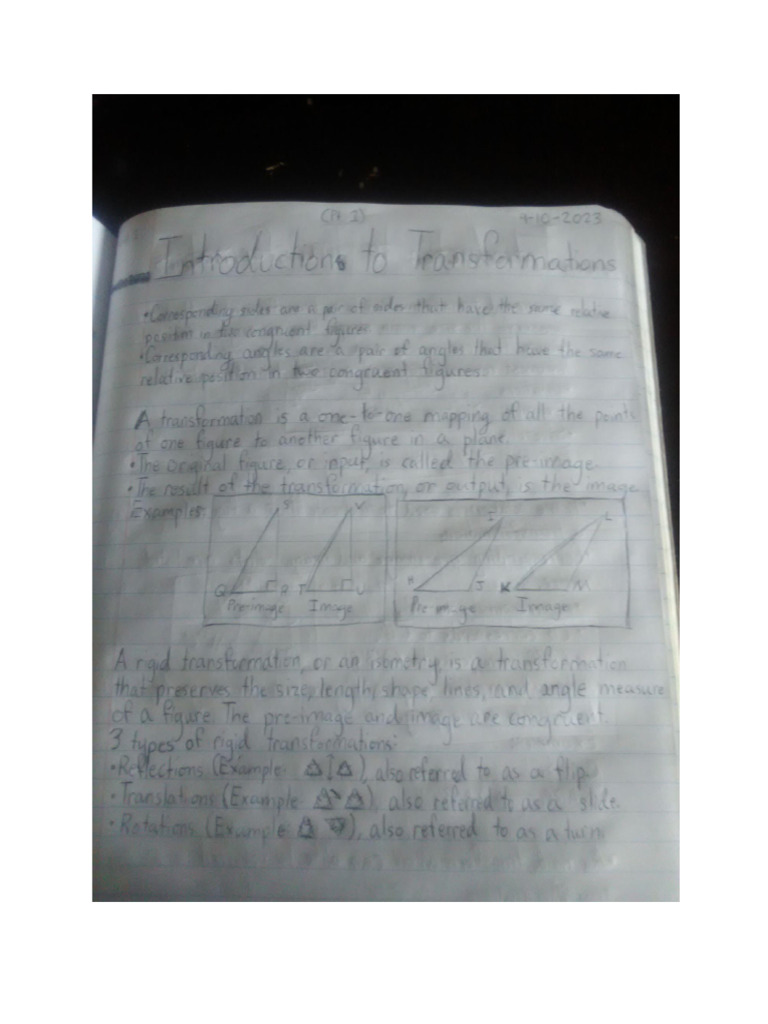 (Pt. 1) 9-10-2023
Introductions to Transformations
• Corresponding sides are a pair of sides that have the same relative
position in two congruent figures
• Corresponding angles are a pair of angles that have the same
relative position in two congruent figures.
A transformation is a one-to-one mapping of all the points
of one figure to another figure in a plane.
• The original figure, or input, is called the pre-image.
• The result of the transformation, or output, is the image.
Examples:
S V I L
Q R T U H J K M
Pre-image Image Pre-image Image
A rigid transformation, or an isometry, is a transformation
that preserves the size, length, shape, lines, and angle measure
of a figure. The pre-image and image are congruent.
3 types of rigid transformations:
• Reflections (Example: ), also referred to as a flip.
• Translations (Example: ), also referred to as a slide.
• Rotations (Example: ), also referred to as a turn.